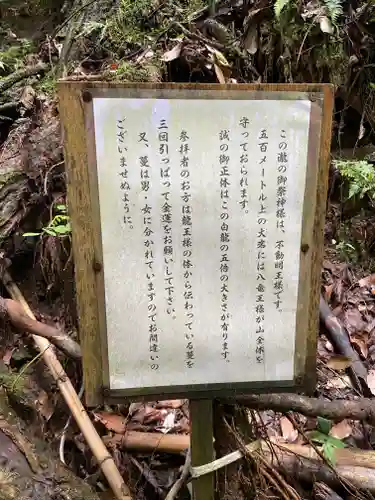 この瀧の御祭神様は、不動明王様です。
五百メートル上の大岩には八大竜王様が山全体を
守っておられます。
誠の御正体はこの白龍の五倍の大きさが有ります。
参拝者の方は龍王様の体から伝わっている蔓を
三回引っぱって金運をお願いして下さい。
又、蔓は男・女に分かれていますのでお間違いの
ございませぬように。